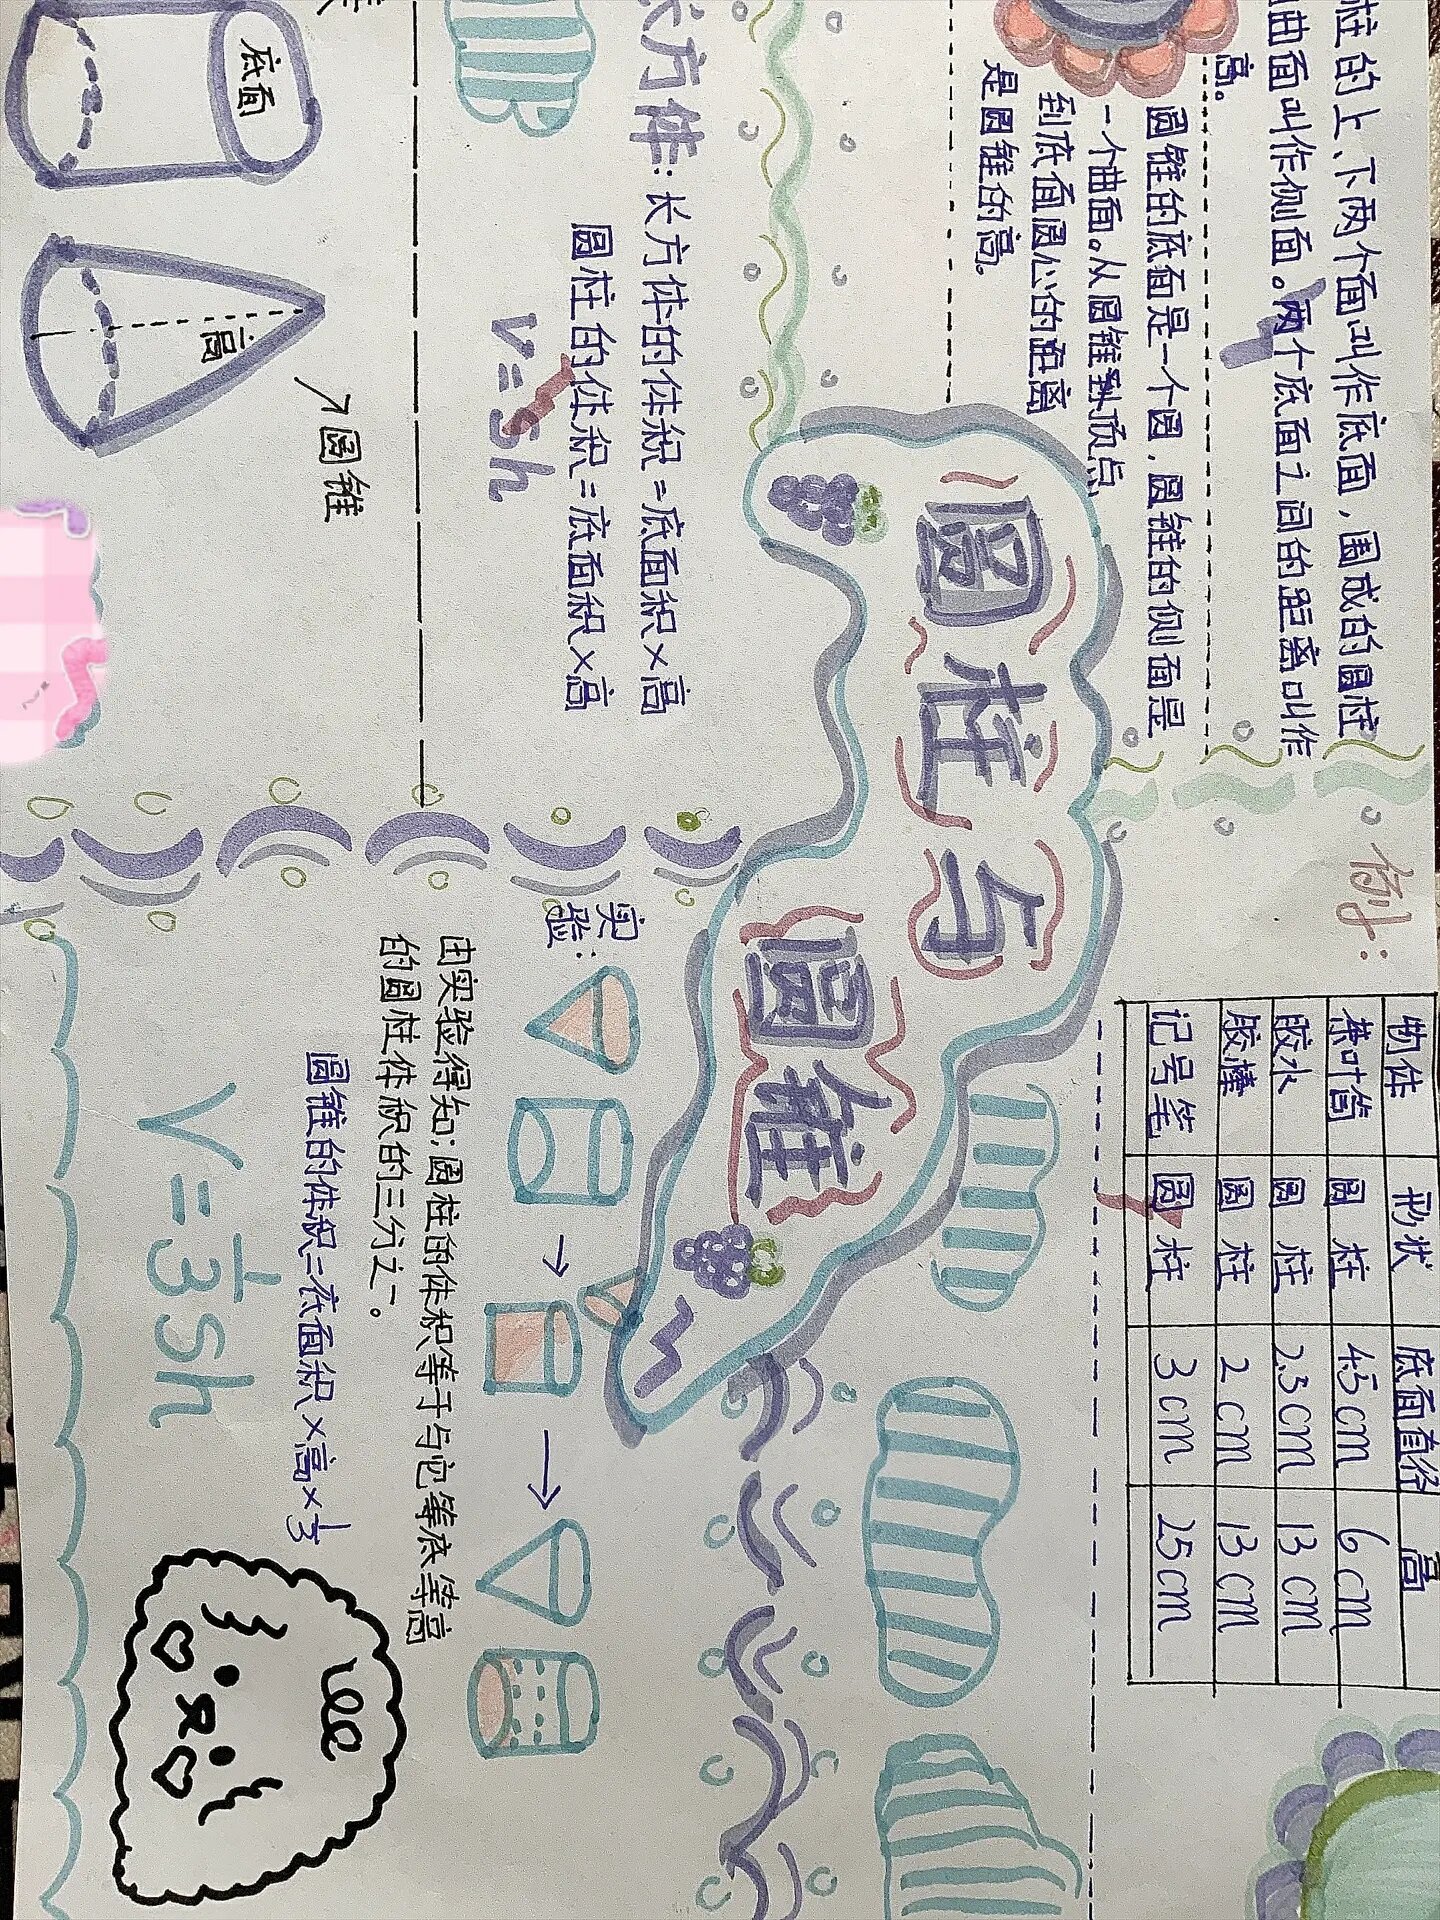 柱的上、下两个面叫作底面,围成的圆柱
曲面叫作侧面。两个底面之间的距离叫作
高。
圆锥的底面是一个圆,圆锥的侧面是
一个曲面。从圆锥到顶点
到底面圆心的距离
是圆锥的高。
例:
物体 形状 底面直径 高
茶叶筒 圆柱 4.5cm 6cm
胶水 圆柱 2.5cm 13cm
胶棒 圆柱 2cm 13cm
记号笔 圆柱 3cm 25cm
圆柱与
圆锥
长方体:长方体的体积=底面积×高
圆柱的体积=底面积×高
V=Sh
底面
高
圆锥
实验:
由实验得知:圆柱的体积等于与它等底等高
的圆柱体积的三分之一。
圆锥的体积=底面积×高×1/3
V=1/3Sh